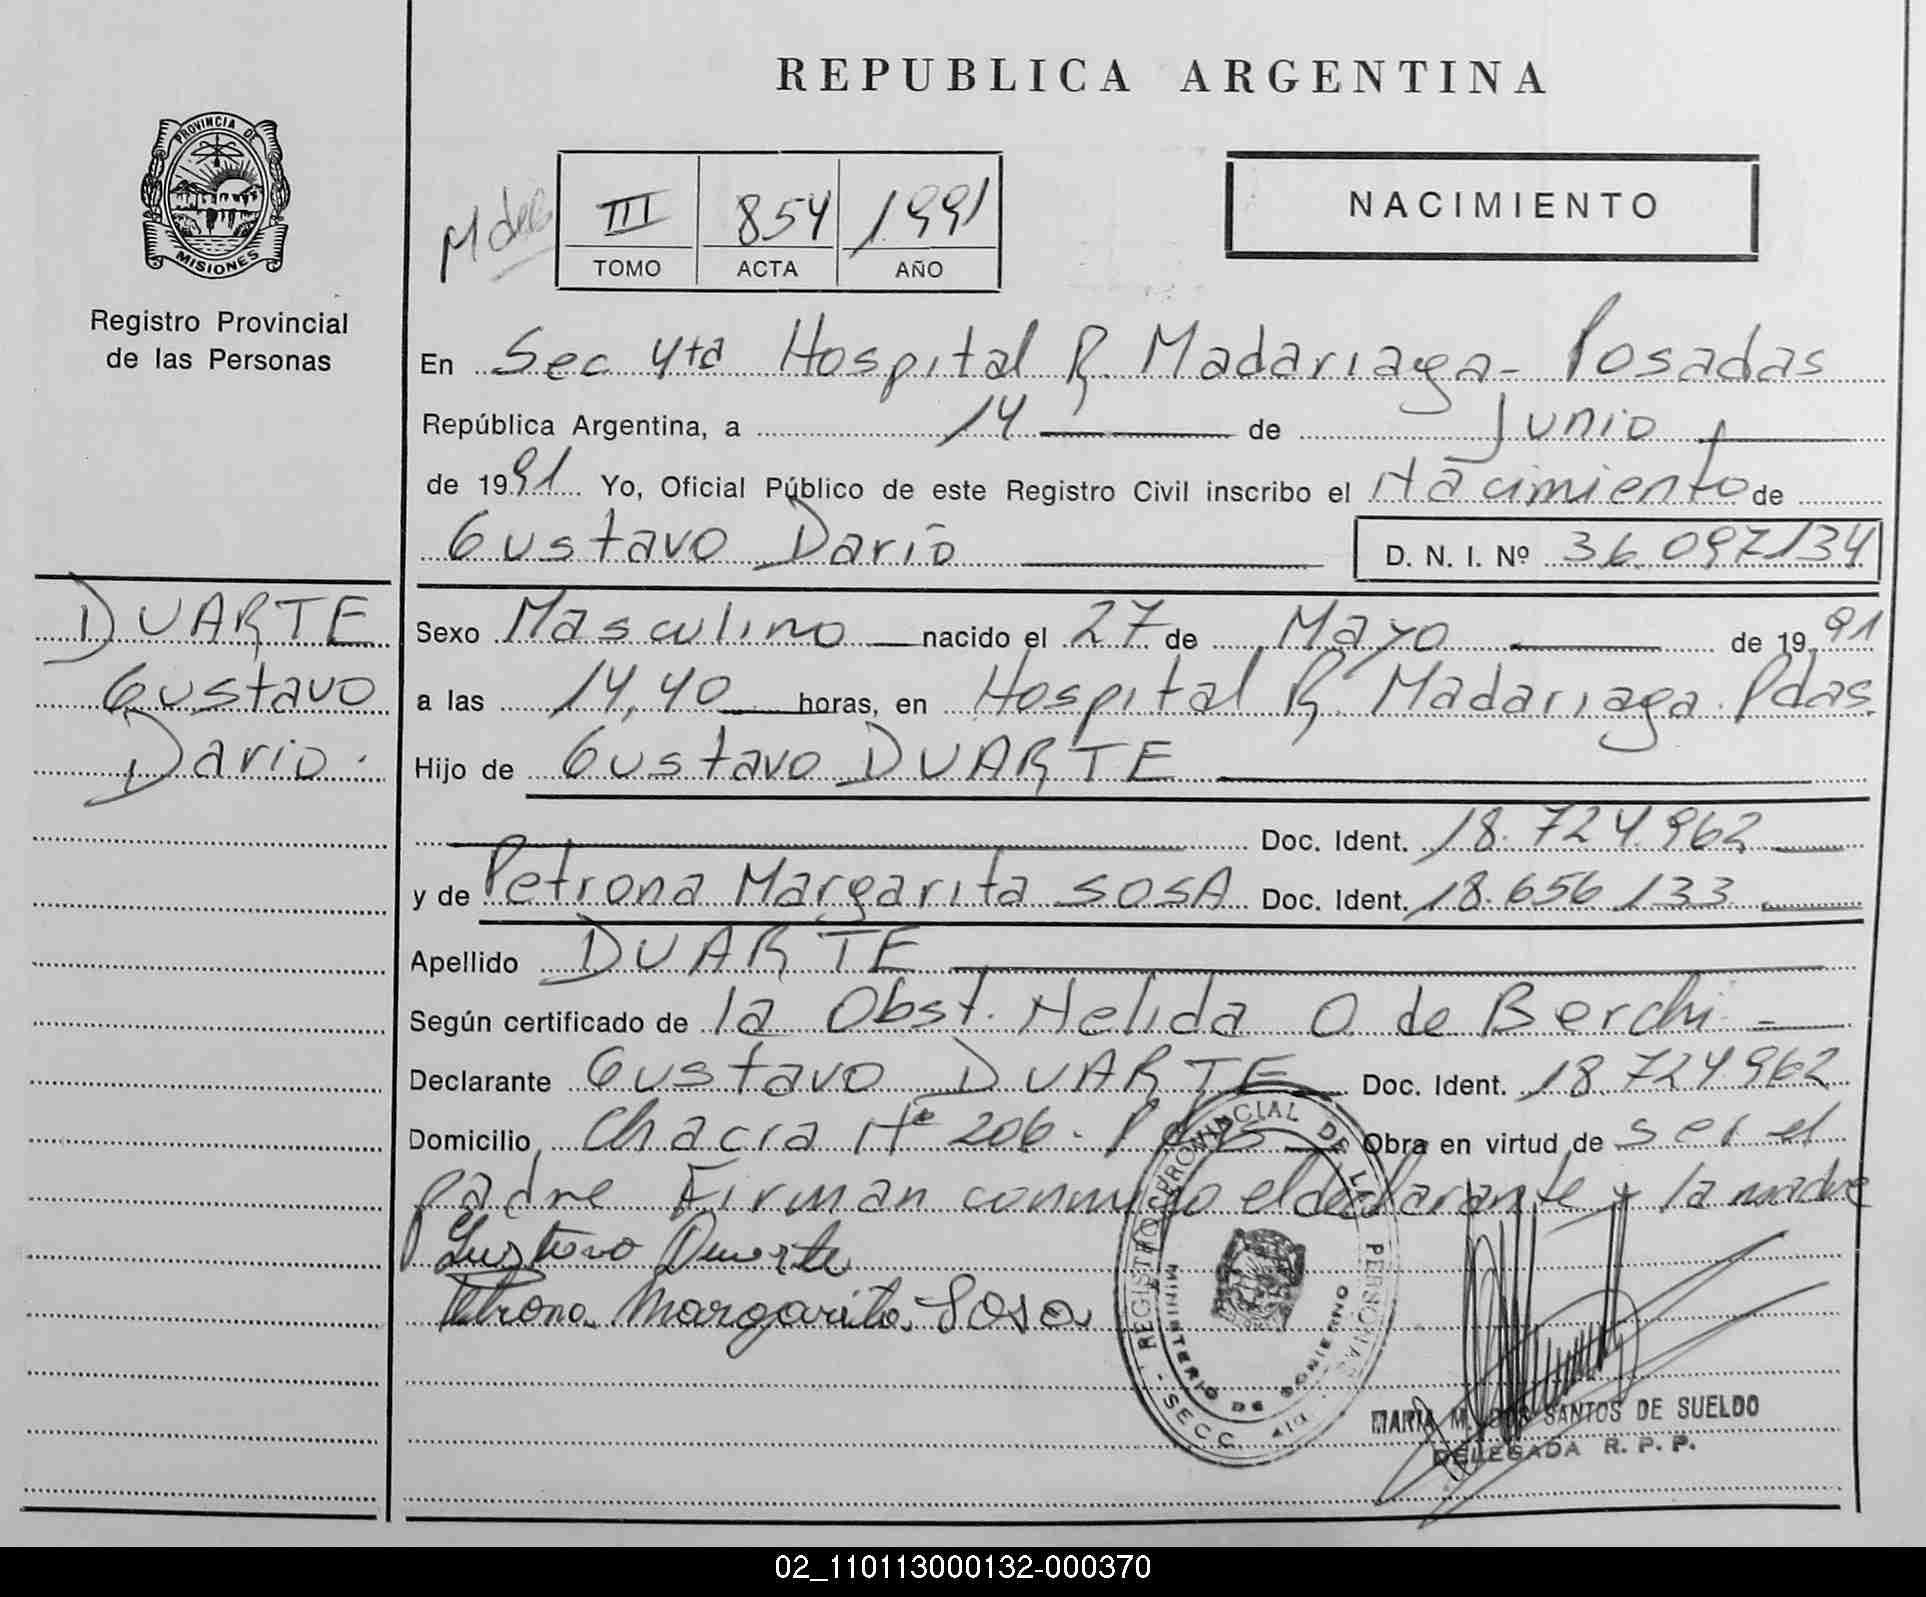 REPUBLICA ARGENTINA
PROVINCIA DE
MISIONES
Registro Provincial
de las Personas
III 854 1991
TOMO ACTA AÑO
NACIMIENTO
En Sec 4ta Hospital R. Madariaga - Posadas
República Argentina, a 14 de Junio
de 1991 Yo, Oficial Público de este Registro Civil inscribo el Nacimiento de
Gustavo Dario D. N. I. Nº 36.097134
DUARTE
Gustavo
Dario.
Sexo Masculino nacido el 27 de Mayo de 1991
a las 14,40 horas, en Hospital R. Madariaga. Pdas.
Hijo de Gustavo DUARTE
Doc. Ident. 18.724.962
y de Petrona Margarita SOSA Doc. Ident. 18.656 133
Apellido DUARTE
Según certificado de la Obst. Nelida O de Berchi -
Declarante Gustavo DUARTE Doc. Ident. 18.724962
Domicilio Chacra Nº 206 - Pdas Obra en virtud de ser el
padre Firman conmigo el declarante y la madre
Gustavo Duarte
Petrona Margarita Sosa
REGISTRO PROVINCIAL DE LAS PERSONAS
MINISTERIO DE GOBIERNO
MARIA M. DOS SANTOS DE SUELDO
DELEGADA R. P. P.
02_110113000132-000370